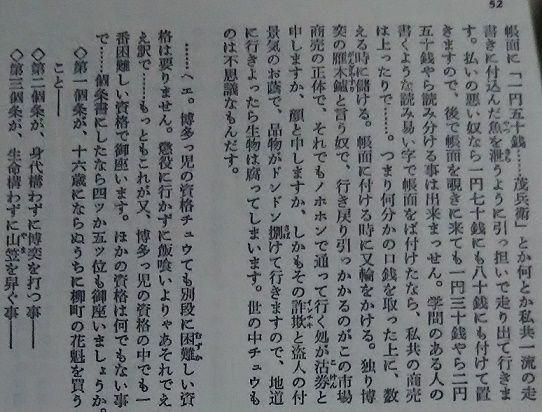 52
帳面に「一円五十銭……茂兵衛」とか何とか私共一流の走
書きに付込んだ魚を泄うように引っ担いで走り出て行きま
す。払いの悪い奴なら一円七十銭にも八十銭にも付けて置
きますので、後で帳面を覗きに来ても一円三十銭やら二円
五十銭やら読み分ける事は出来まっせん。学問のある人の
書くような読み易い字で帳面をば付けたなら、私共の商売
は上ったりで……。つまり何分かの口銭を取った上に、数
える時に儲ける。帳面に付ける時に又輪をかける。独り博
奕の雁木鑢と言う奴で、行き戻り引っかかるのがこの市場
商売の正体で、それでもノホホンで通って行く処が沽券と
申しますか、顔と申しますか、しかもその詐欺と盗人の付
景気のお蔭で、品物がドンドン捌けて行きますので、地道
に行きよったら生物は腐ってしまいます。世の中チュウも
のは不思議なもんだす。
……ヘエ。博多っ児の資格チュウても別段に困難しい資
格は要りません。懲役に行かずに飯喰いよりゃあそれでえ
え訳で……もっともこれが又、博多っ児の資格の中でも一
番困難しい資格で御座います。ほかの資格は何でもない事
で……個条書にしたなら四ッか五ッ位も御座いましょうか。
◇第一個条が、十六歳にならぬうちに柳町の花魁を買う
こと――
◇第二個条が、身代構わずに博奕を打つ事――
◇第三個条が、生命構わずに山笠を舁ぐ事――